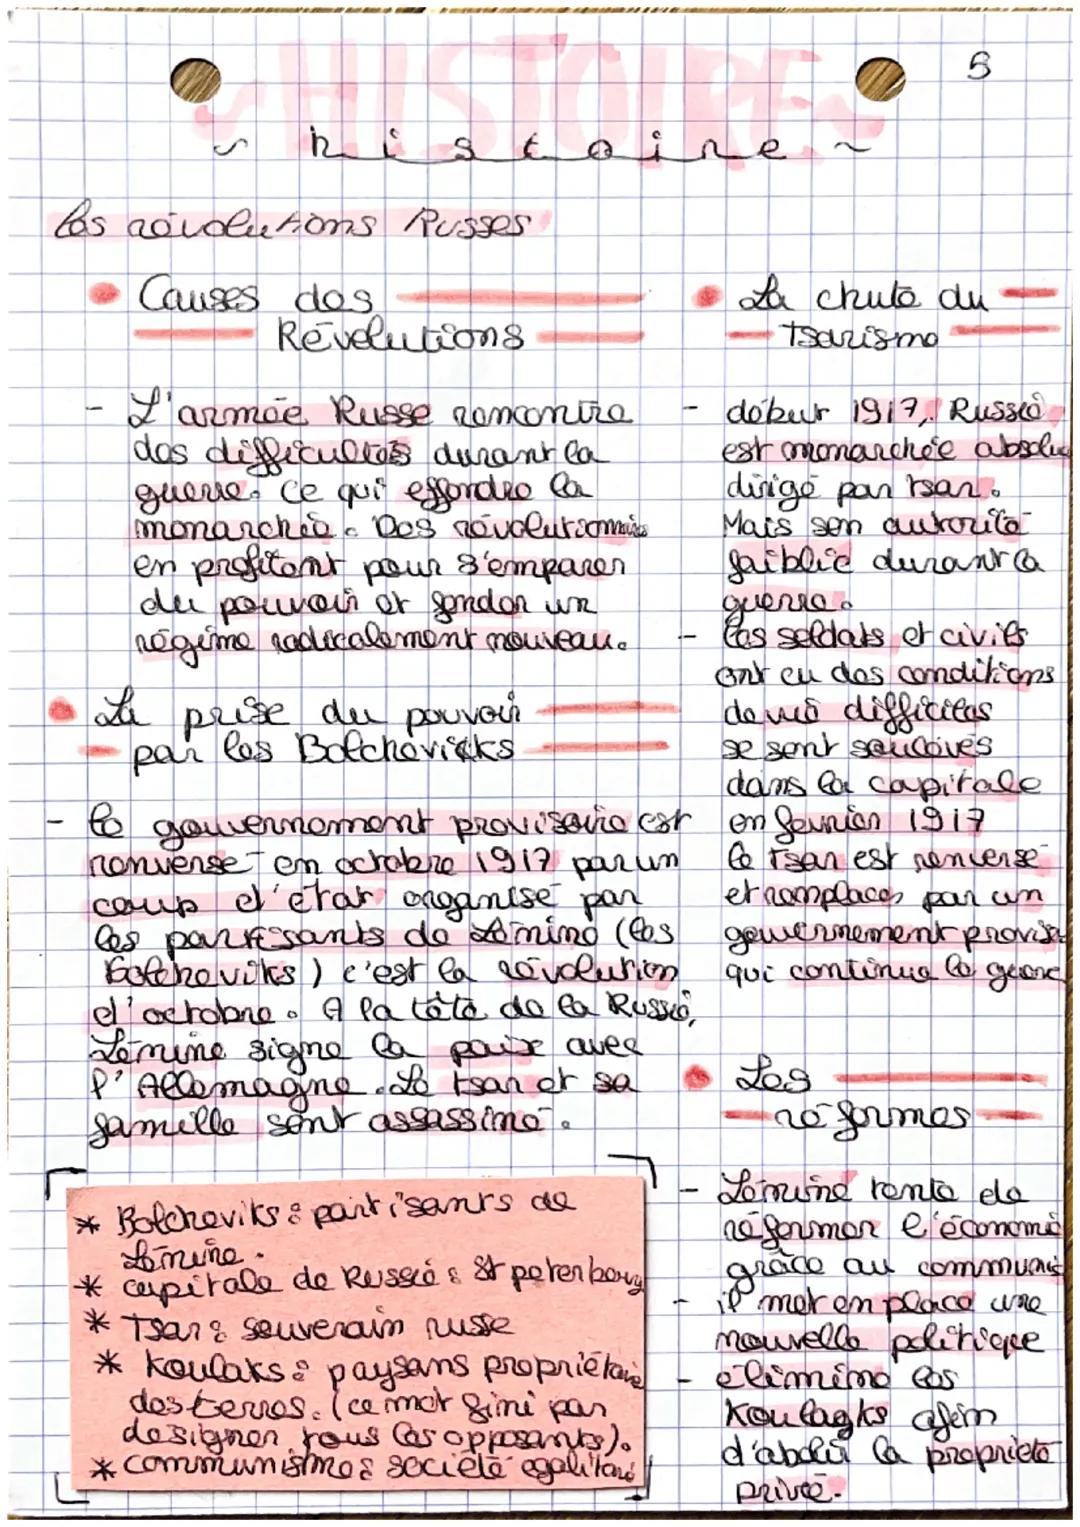 HISTOIRE
5
~ histoire ~
Les révolutions Russes
Causes des
Révolutions
- L'armée Russe rencontre
des difficultés durant la
guerre. Ce qui effondre la
monarchie. Des révolutionnais
en profitent pour s'emparer
du pouvoir et fonder un
régime radicalement nouveau.
La prise du pouvoir
par les Bolcheviks
- le gouvernement provisoire est
renversé en octobre 1917 par un
coup d'état organisé par
les partisants de Lénine (les
bolcheviks) c'est la révolution
d'octobre. A la tête de la Russie,
Lénine signe la paix avec
l'Allemagne. Le tsar et sa
famille sont assassiné.
* Bolcheviks : partisants de
Lénine.
* capitale de Russie : St petersbourg
* Tsar : souverain russe
* Koulaks : paysans propriétaire
des terres. (ce mot fini par
designer tous les opposants).
* communisme : société egalitaire
La chute du
Tsarisme
- début 1917, Russie
est monarchée absolu
dirigé par tsar.
Mais son autorité
faiblie durant la
guerre.
- les soldats et civils
ont eu des conditions
de vie difficiles
se sont soulevés
dans la capitale
en fevrier 1917
le tsar est renversé
et remplacer par un
gouvernement provis
qui continue la guerre
Les
réformes
- Lénine tente de
réformer l'économie
grâce au communis
- il met en place une
nouvelle politique
- élimine les
Koulagks afin
d'abolir la propriété
privée.